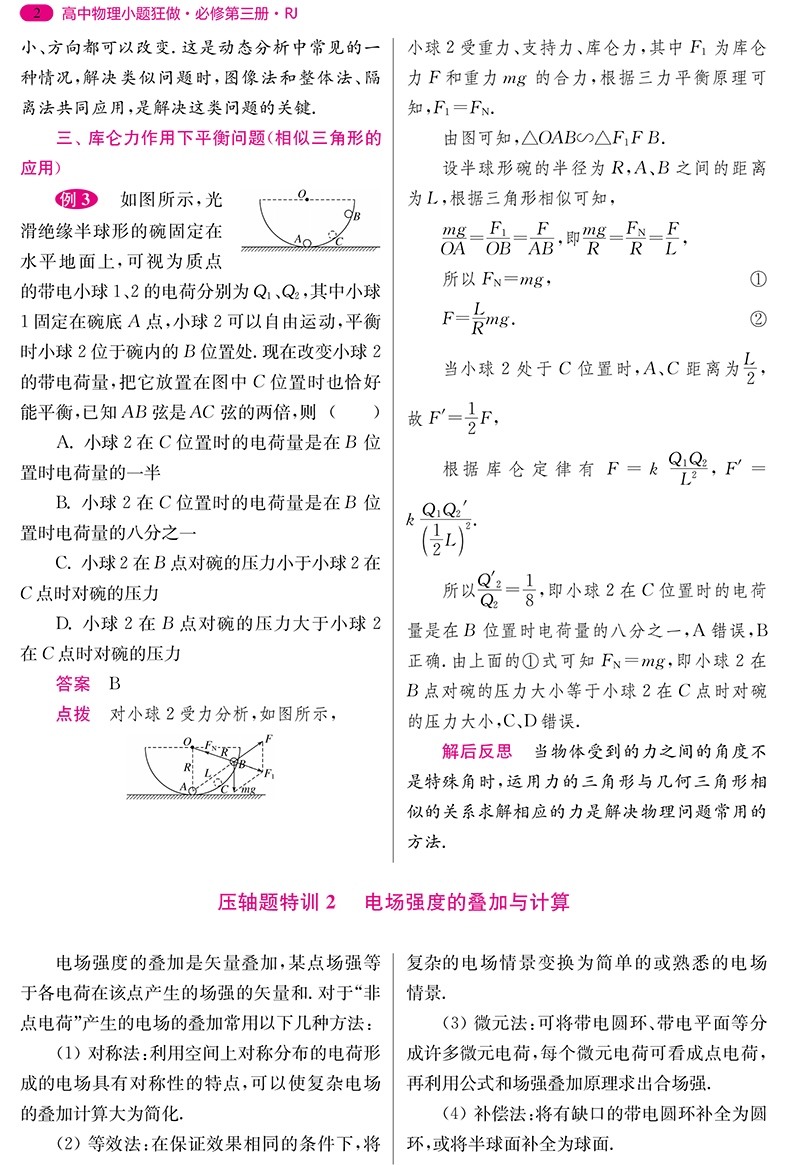 2 高中物理小题狂做·必修第三册·RJ
小、方向都可以改变.这是动态分析中常见的一
种情况,解决类似问题时,图像法和整体法、隔
离法共同应用,是解决这类问题的关键.
三、库仑力作用下平衡问题(相似三角形的
应用)
例3 如图所示,光
滑绝缘半球形的碗固定在
水平地面上,可视为质点
O
B
A
C
的带电小球1、2的电荷分别为Q₁、Q₂,其中小球
1固定在碗底A点,小球2可以自由运动,平衡
时小球2位于碗内的B位置处.现在改变小球2
的带电荷量,把它放置在图中C位置时也恰好
能平衡,已知AB弦是AC弦的两倍,则 (  )
A. 小球2在C位置时的电荷量是在B位
置时电荷量的一半
B. 小球2在C位置时的电荷量是在B位
置时电荷量的八分之一
C. 小球2在B点对碗的压力小于小球2在
C点时对碗的压力
D. 小球2在B点对碗的压力大于小球2
在C点时对碗的压力
答案 B
点拨 对小球2受力分析,如图所示,
O F_N R F
R L B F₁
A C mg
小球2受重力、支持力、库仑力,其中F₁为库仑
力F和重力mg的合力,根据三力平衡原理可
知,F₁=F_N.
由图可知,△OAB∽△F₁FB.
设半球形碗的半径为R,A、B之间的距离
为L,根据三角形相似可知,
mg/OA=F₁/OB=F/AB,即mg/R=F_N/R=F/L,
所以F_N=mg, ①
F=L/R mg. ②
当小球2处于C位置时,A、C距离为L/2,
故F′=1/2 F,
根据库仑定律有F=k Q₁Q₂/L²,F′=
k Q₁Q₂′/(1/2 L)².
所以Q′₂/Q₂=1/8,即小球2在C位置时的电荷
量是在B位置时电荷量的八分之一,A错误,B
正确.由上面的①式可知F_N=mg,即小球2在
B点对碗的压力大小等于小球2在C点时对碗
的压力大小,C、D错误.
解后反思 当物体受到的力之间的角度不
是特殊角时,运用力的三角形与几何三角形相
似的关系求解相应的力是解决物理问题常用的
方法.
压轴题特训2 电场强度的叠加与计算
电场强度的叠加是矢量叠加,某点场强等
于各电荷在该点产生的场强的矢量和.对于“非
点电荷”产生的电场的叠加常用以下几种方法:
(1) 对称法:利用空间上对称分布的电荷形
成的电场具有对称性的特点,可以使复杂电场
的叠加计算大为简化.
(2) 等效法:在保证效果相同的条件下,将
复杂的电场情景变换为简单的或熟悉的电场
情景.
(3) 微元法:可将带电圆环、带电平面等分
成许多微元电荷,每个微元电荷可看成点电荷,
再利用公式和场强叠加原理求出合场强.
(4) 补偿法:将有缺口的带电圆环补全为圆
环,或将半球面补全为球面.